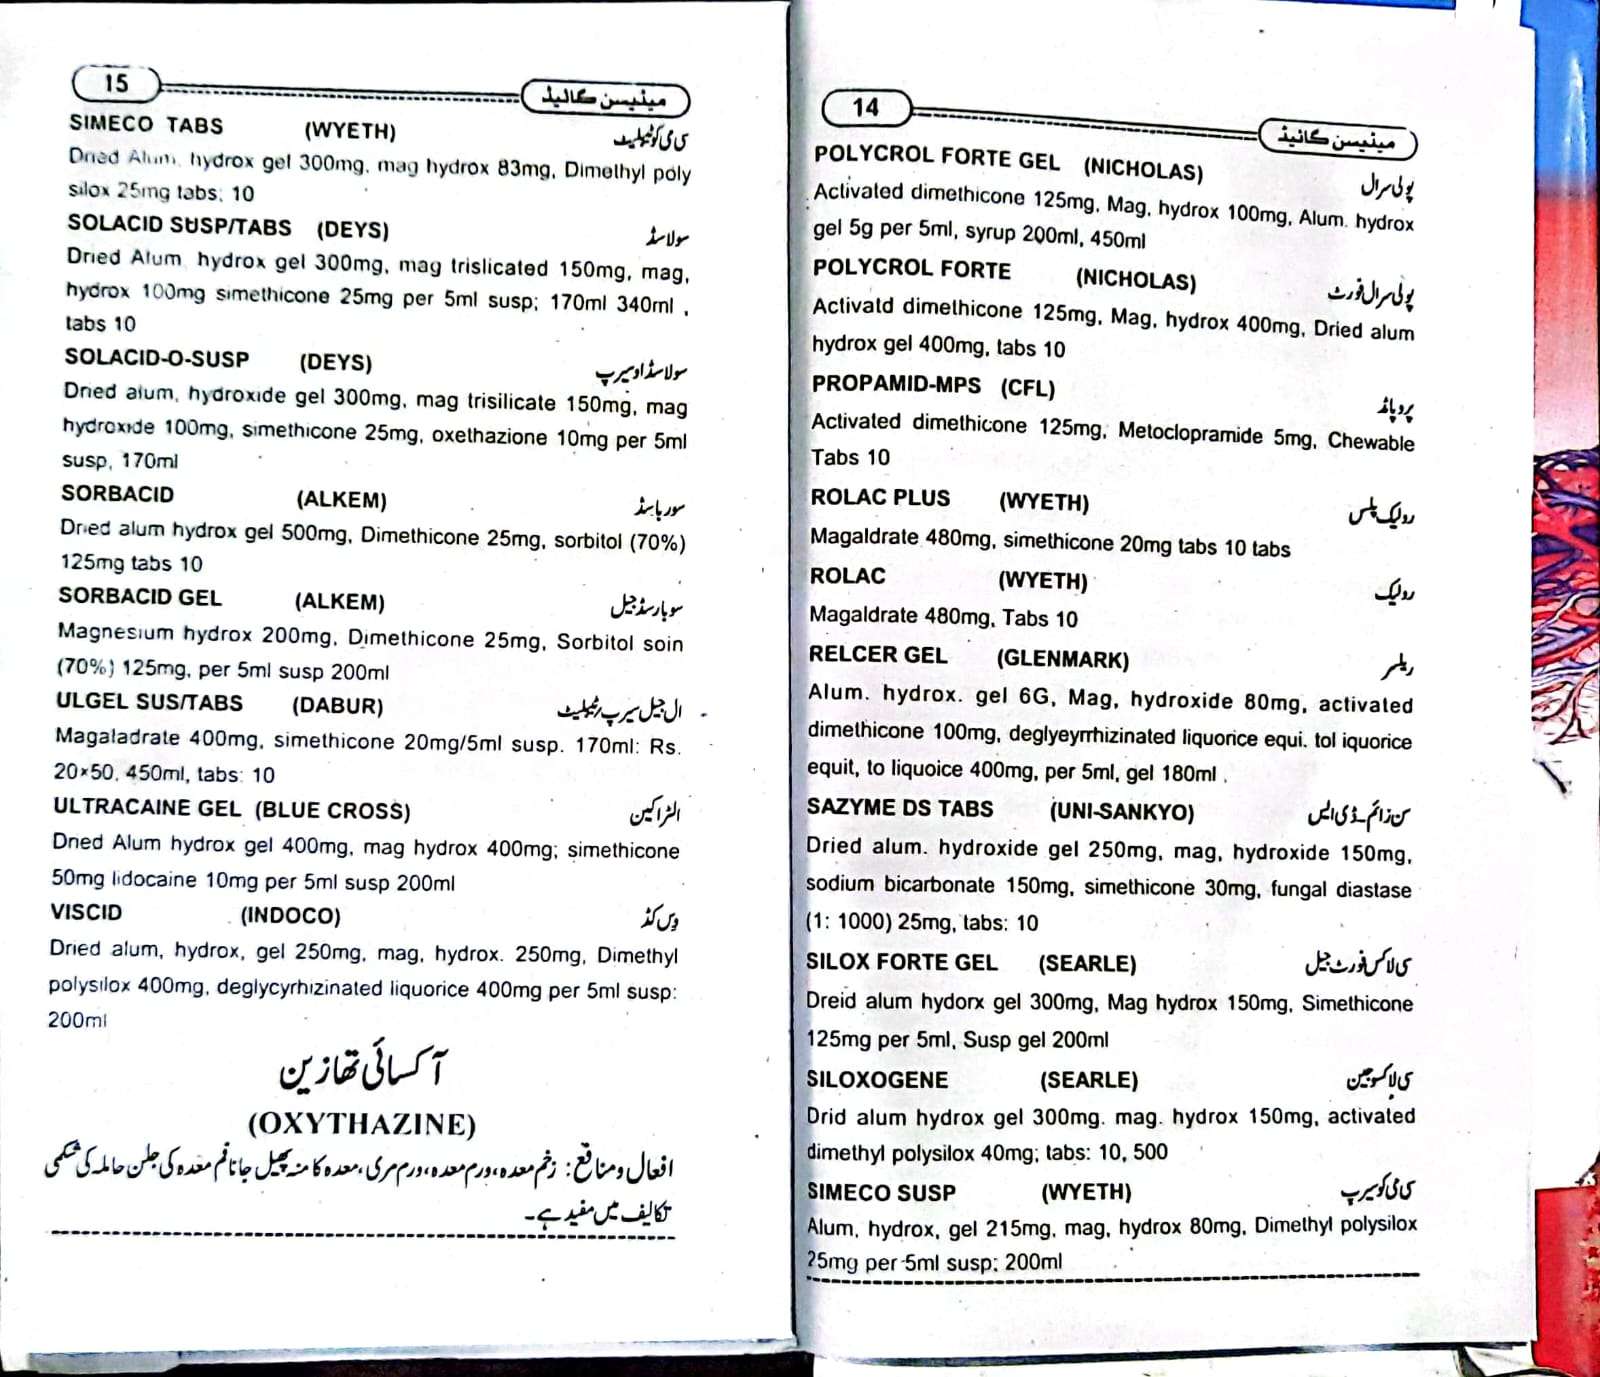 14
میڈیسن گائیڈ
POLYCROL FORTE GEL (NICHOLAS) پولی سرال
Activated dimethicone 125mg, Mag, hydrox 100mg, Alum. hydrox
gel 5g per 5ml, syrup 200ml, 450ml
POLYCROL FORTE (NICHOLAS) پولی سرال فورٹ
Activatd dimethicone 125mg, Mag, hydrox 400mg, Dried alum
hydrox gel 400mg, tabs 10
PROPAMID-MPS (CFL)
Activated dimethicone 125mg, Metoclopramide 5mg, Chewable
Tabs 10
ROLAC PLUS (WYETH) رولیک پلس
Magaldrate 480mg, simethicone 20mg tabs 10 tabs
ROLAC (WYETH) رولیک
Magaldrate 480mg, Tabs 10
RELCER GEL (GLENMARK) ریلسر
Alum. hydrox. gel 6G, Mag, hydroxide 80mg, activated
dimethicone 100mg, deglyeyrrhizinated liquorice equi. tol iquorice
equit, to liquoice 400mg, per 5ml, gel 180ml .
SAZYME DS TABS (UNI-SANKYO) سن زائم ۔ ڈی ایس
Dried alum. hydroxide gel 250mg, mag, hydroxide 150mg,
sodium bicarbonate 150mg, simethicone 30mg, fungal diastase
(1: 1000) 25mg, tabs: 10
SILOX FORTE GEL (SEARLE) سی لاکس فورٹ جیل
Dreid alum hydorx gel 300mg, Mag hydrox 150mg, Simethicone
125mg per 5ml, Susp gel 200ml
SILOXOGENE (SEARLE) سی لاکسو جین
Drid alum hydrox gel 300mg. mag. hydrox 150mg, activated
dimethyl polysilox 40mg; tabs: 10, 500
SIMECO SUSP (WYETH) سی می کو سیرپ
Alum, hydrox, gel 215mg, mag, hydrox 80mg, Dimethyl polysilox
25mg per 5ml susp: 200ml
15
میڈیسن گائیڈ
SIMECO TABS (WYETH) سی می کو ٹیبلیٹ
Dried Alum, hydrox gel 300mg, mag hydrox 83mg, Dimethyl poly
silox 25mg tabs; 10
SOLACID SUSP/TABS (DEYS) سولاسڈ
Dried Alum hydrox gel 300mg, mag trislicated 150mg, mag,
hydrox 100mg simethicone 25mg per 5ml susp; 170ml 340ml ,
tabs 10
SOLACID-O-SUSP (DEYS) سولاسڈ او سیرپ
Dried alum, hydroxide gel 300mg, mag trisilicate 150mg, mag
hydroxide 100mg, simethicone 25mg, oxethazione 10mg per 5ml
susp, 170ml
SORBACID (ALKEM) سورباسڈ
Dried alum hydrox gel 500mg, Dimethicone 25mg, sorbitol (70%)
125mg tabs 10
SORBACID GEL (ALKEM) سوبارسڈ جیل
Magnesium hydrox 200mg, Dimethicone 25mg, Sorbitol soin
(70%) 125mg, per 5ml susp 200ml
ULGEL SUS/TABS (DABUR) ال جیل سیرپ، ٹیبلیٹ
Magaladrate 400mg, simethicone 20mg/5ml susp. 170ml: Rs.
20×50, 450ml, tabs: 10
ULTRACAINE GEL (BLUE CROSS) الٹراکین
Dned Alum hydrox gel 400mg, mag hydrox 400mg; simethicone
50mg lidocaine 10mg per 5ml susp 200ml
VISCID (INDOCO) وِس کڈ
Dried alum, hydrox, gel 250mg, mag, hydrox. 250mg, Dimethyl
polysilox 400mg, deglycyrhizinated liquorice 400mg per 5ml susp:
200ml
آکسائی تھازین
(OXYTHAZINE)
افعال و منافع: زخم معدہ، ورم معدہ، ورم مری، معدہ کا منہ پھیل جانا فم معدہ کی جلن حاملہ کی شکمی
تکالیف میں مفید ہے۔